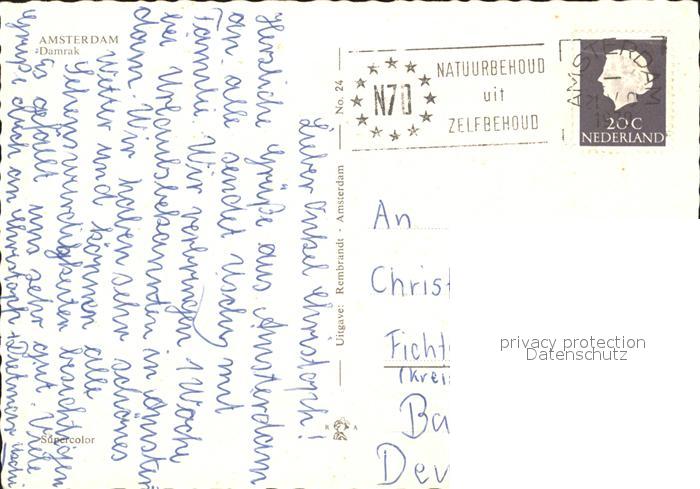 AMSTERDAM
Damrak
Lieber Onkel Christoph!
Herzliche Grüße aus Amsterdam
an alle sendet Uschy mit
Familie. Wir verbringen 1 Woche
bei Urlaubsbekannten in Amster-
dam. Wir haben sehr schönes
Wetter und können alle
Sehenswürdigkeiten besichtigen.
Es gefällt uns sehr gut. Viele
Grüße auch an
Supercolor
Uitgave: Rembrandt - Amsterdam No. 24
R A
N70
NATUURBEHOUD
uit
ZELFBEHOUD
AMSTERDAM
20 C
NEDERLAND
An
Christ
Ficht
(Krei
Ba
Deu
privacy protection
Datenschutz